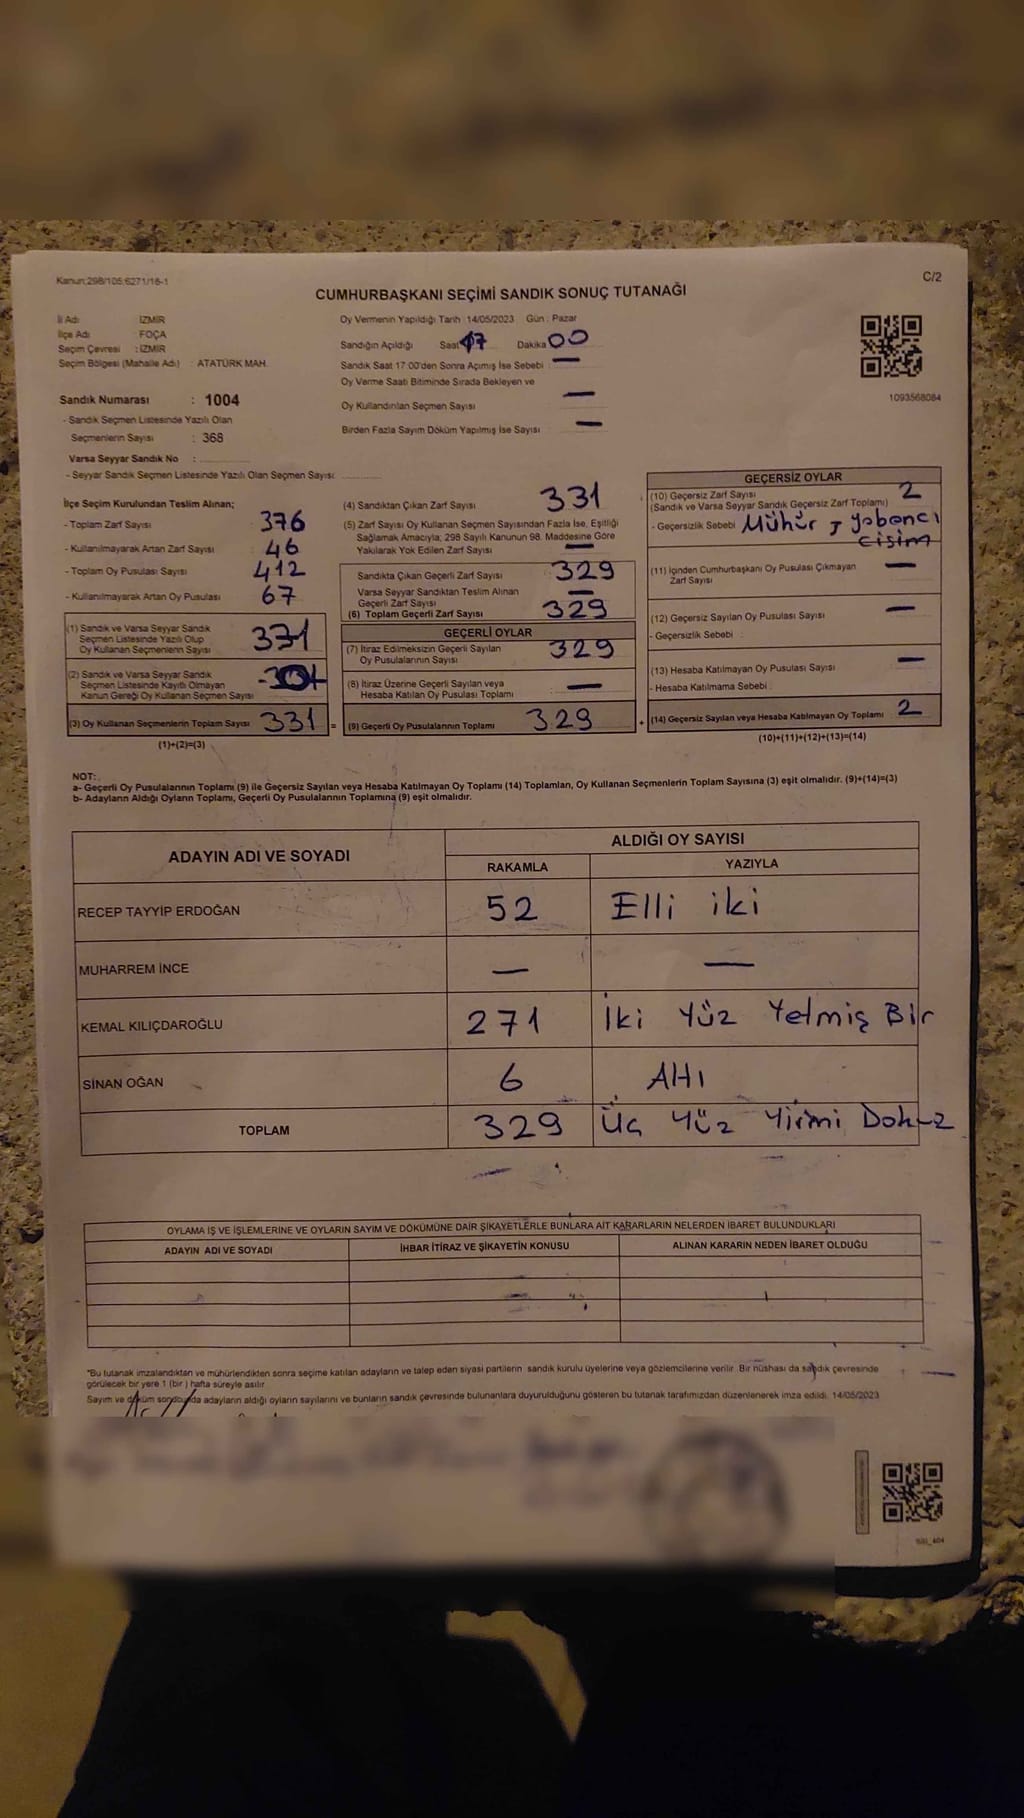 Kanun;298/105;6271/16-1
C/2
CUMHURBAŞKANI SEÇİMİ SANDIK SONUÇ TUTANAĞI
İl Adı : İZMİR
İlçe Adı : FOÇA
Seçim Çevresi : İZMİR
Seçim Bölgesi (Mahalle Adı) : ATATÜRK MAH.
Sandık Numarası : 1004
- Sandık Seçmen Listesinde Yazılı Olan
Seçmenlerin Sayısı : 368
Varsa Seyyar Sandık No :
- Seyyar Sandık Seçmen Listesinde Yazılı Olan Seçmen Sayısı:
Oy Vermenin Yapıldığı Tarih :14/05/2023 Gün : Pazar
Sandığın Açıldığı Saat 17 Dakika 00
Sandık Saat 17:00'den Sonra Açımış İse Sebebi : —
Oy Verme Saati Bitiminde Sırada Bekleyen ve
Oy Kullandırılan Seçmen Sayısı —
Birden Fazla Sayım Döküm Yapılmış İse Sayısı —
1093568084
İlçe Seçim Kurulundan Teslim Alınan;
- Toplam Zarf Sayısı 376
- Kullanılmayarak Artan Zarf Sayısı 46
- Toplam Oy Pusulası Sayısı 412
- Kullanılmayarak Artan Oy Pusulası 67
(1) Sandık ve Varsa Seyyar Sandık
Seçmen Listesinde Yazılı Olup
Oy Kullanan Seçmenlerin Sayısı 331
(2) Sandık ve Varsa Seyyar Sandık
Seçmen Listesinde Kayıtlı Olmayan
Kanun Gereği Oy Kullanan Seçmen Sayısı
(3) Oy Kullanan Seçmenlerin Toplam Sayısı 331 =
(1)+(2)=(3)
(4) Sandıktan Çıkan Zarf Sayısı 331
(5) Zarf Sayısı Oy Kullanan Seçmen Sayısından Fazla İse, Eşitliği
Sağlamak Amacıyla; 298 Sayılı Kanunun 98. Maddesine Göre
Yakılarak Yok Edilen Zarf Sayısı —
Sandıkta Çıkan Geçerli Zarf Sayısı 329
Varsa Seyyar Sandıktan Teslim Alınan
Geçerli Zarf Sayısı —
(6) Toplam Geçerli Zarf Sayısı 329
GEÇERLİ OYLAR
(7) İtiraz Edilmeksizin Geçerli Sayılan
Oy Pusulalarının Sayısı 329
(8) İtiraz Üzerine Geçerli Sayılan veya
Hesaba Katılan Oy Pusulası Toplamı —
(9) Geçerli Oy Pusulalarının Toplamı 329 +
GEÇERSİZ OYLAR
(10) Geçersiz Zarf Sayısı 2
(Sandık ve Varsa Seyyar Sandık Geçersiz Zarf Toplamı)
- Geçersizlik Sebebi Mühür, yabancı
cisim
(11) İçinden Cumhurbaşkanı Oy Pusulası Çıkmayan
Zarf Sayısı —
(12) Geçersiz Sayılan Oy Pusulası Sayısı —
- Geçersizlik Sebebi :
(13) Hesaba Katılmayan Oy Pusulası Sayısı —
- Hesaba Katılmama Sebebi
(14) Geçersiz Sayılan veya Hesaba Katılmayan Oy Toplamı 2
(10)+(11)+(12)+(13)=(14)
NOT:
a- Geçerli Oy Pusulalarının Toplamı (9) ile Geçersiz Sayılan veya Hesaba Katılmayan Oy Toplamı (14) Toplamları, Oy Kullanan Seçmenlerin Toplam Sayısına (3) eşit olmalıdır. (9)+(14)=(3)
b- Adayların Aldığı Oyların Toplamı, Geçerli Oy Pusulalarının Toplamına (9) eşit olmalıdır.
ADAYIN ADI VE SOYADI ALDIĞI OY SAYISI
RAKAMLA YAZIYLA
RECEP TAYYİP ERDOĞAN 52 Elli iki
MUHARREM İNCE — —
KEMAL KILIÇDAROĞLU 271 İki Yüz Yetmiş Bir
SİNAN OĞAN 6 Altı
TOPLAM 329 Üç Yüz Yirmi Dokuz
OYLAMA İŞ VE İŞLEMLERİNE VE OYLARIN SAYIM VE DÖKÜMÜNE DAİR ŞİKAYETLERLE BUNLARA AİT KARARLARIN NELERDEN İBARET BULUNDUKLARI
ADAYIN ADI VE SOYADI İHBAR İTİRAZ VE ŞİKAYETİN KONUSU ALINAN KARARIN NEDEN İBARET OLDUĞU
*Bu tutanak imzalandıktan ve mühürlendikten sonra seçime katılan adayların ve talep eden siyasi partilerin sandık kurulu üyelerine veya gözlemcilerine verilir. Bir nüshası da sandık çevresinde
görülecek bir yere 1 (bir ) hafta süreyle asılır.
Sayım ve döküm sonucunda adayların aldığı oyların sayılarını ve bunların sandık çevresinde bulunanlara duyurulduğunu gösteren bu tutanak tarafımızdan düzenlenerek imza edildi. 14/05/2023